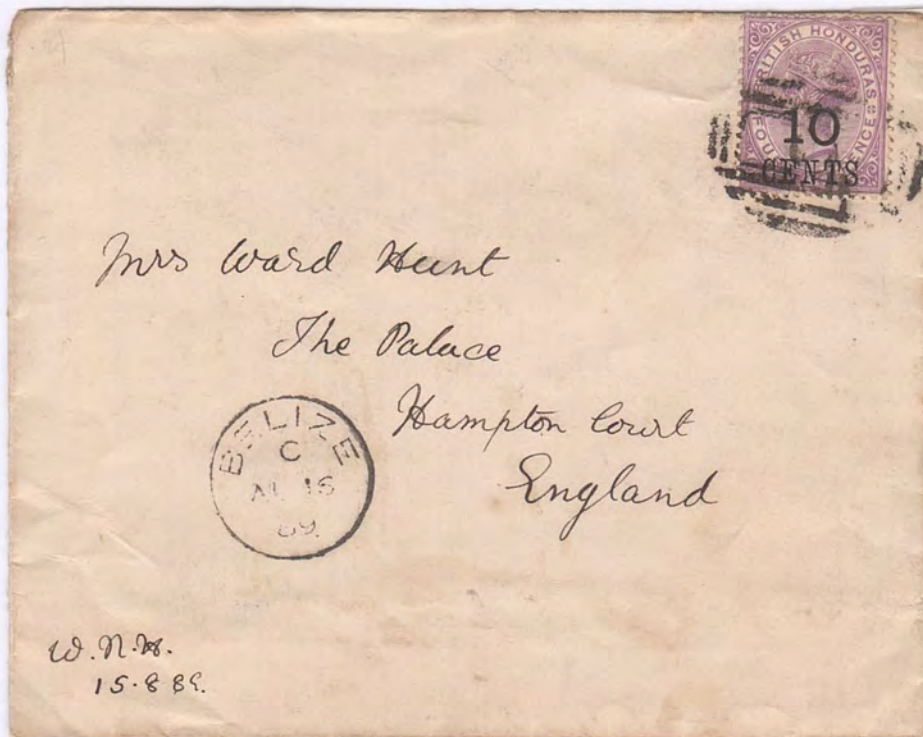 BRITISH HONDURAS
FOUR PENCE
10
CENTS
Mrs Ward Hunt
The Palace
Hampton Court
England
BELIZE
C
AU 16
89
W.N.H.
15.8.89.